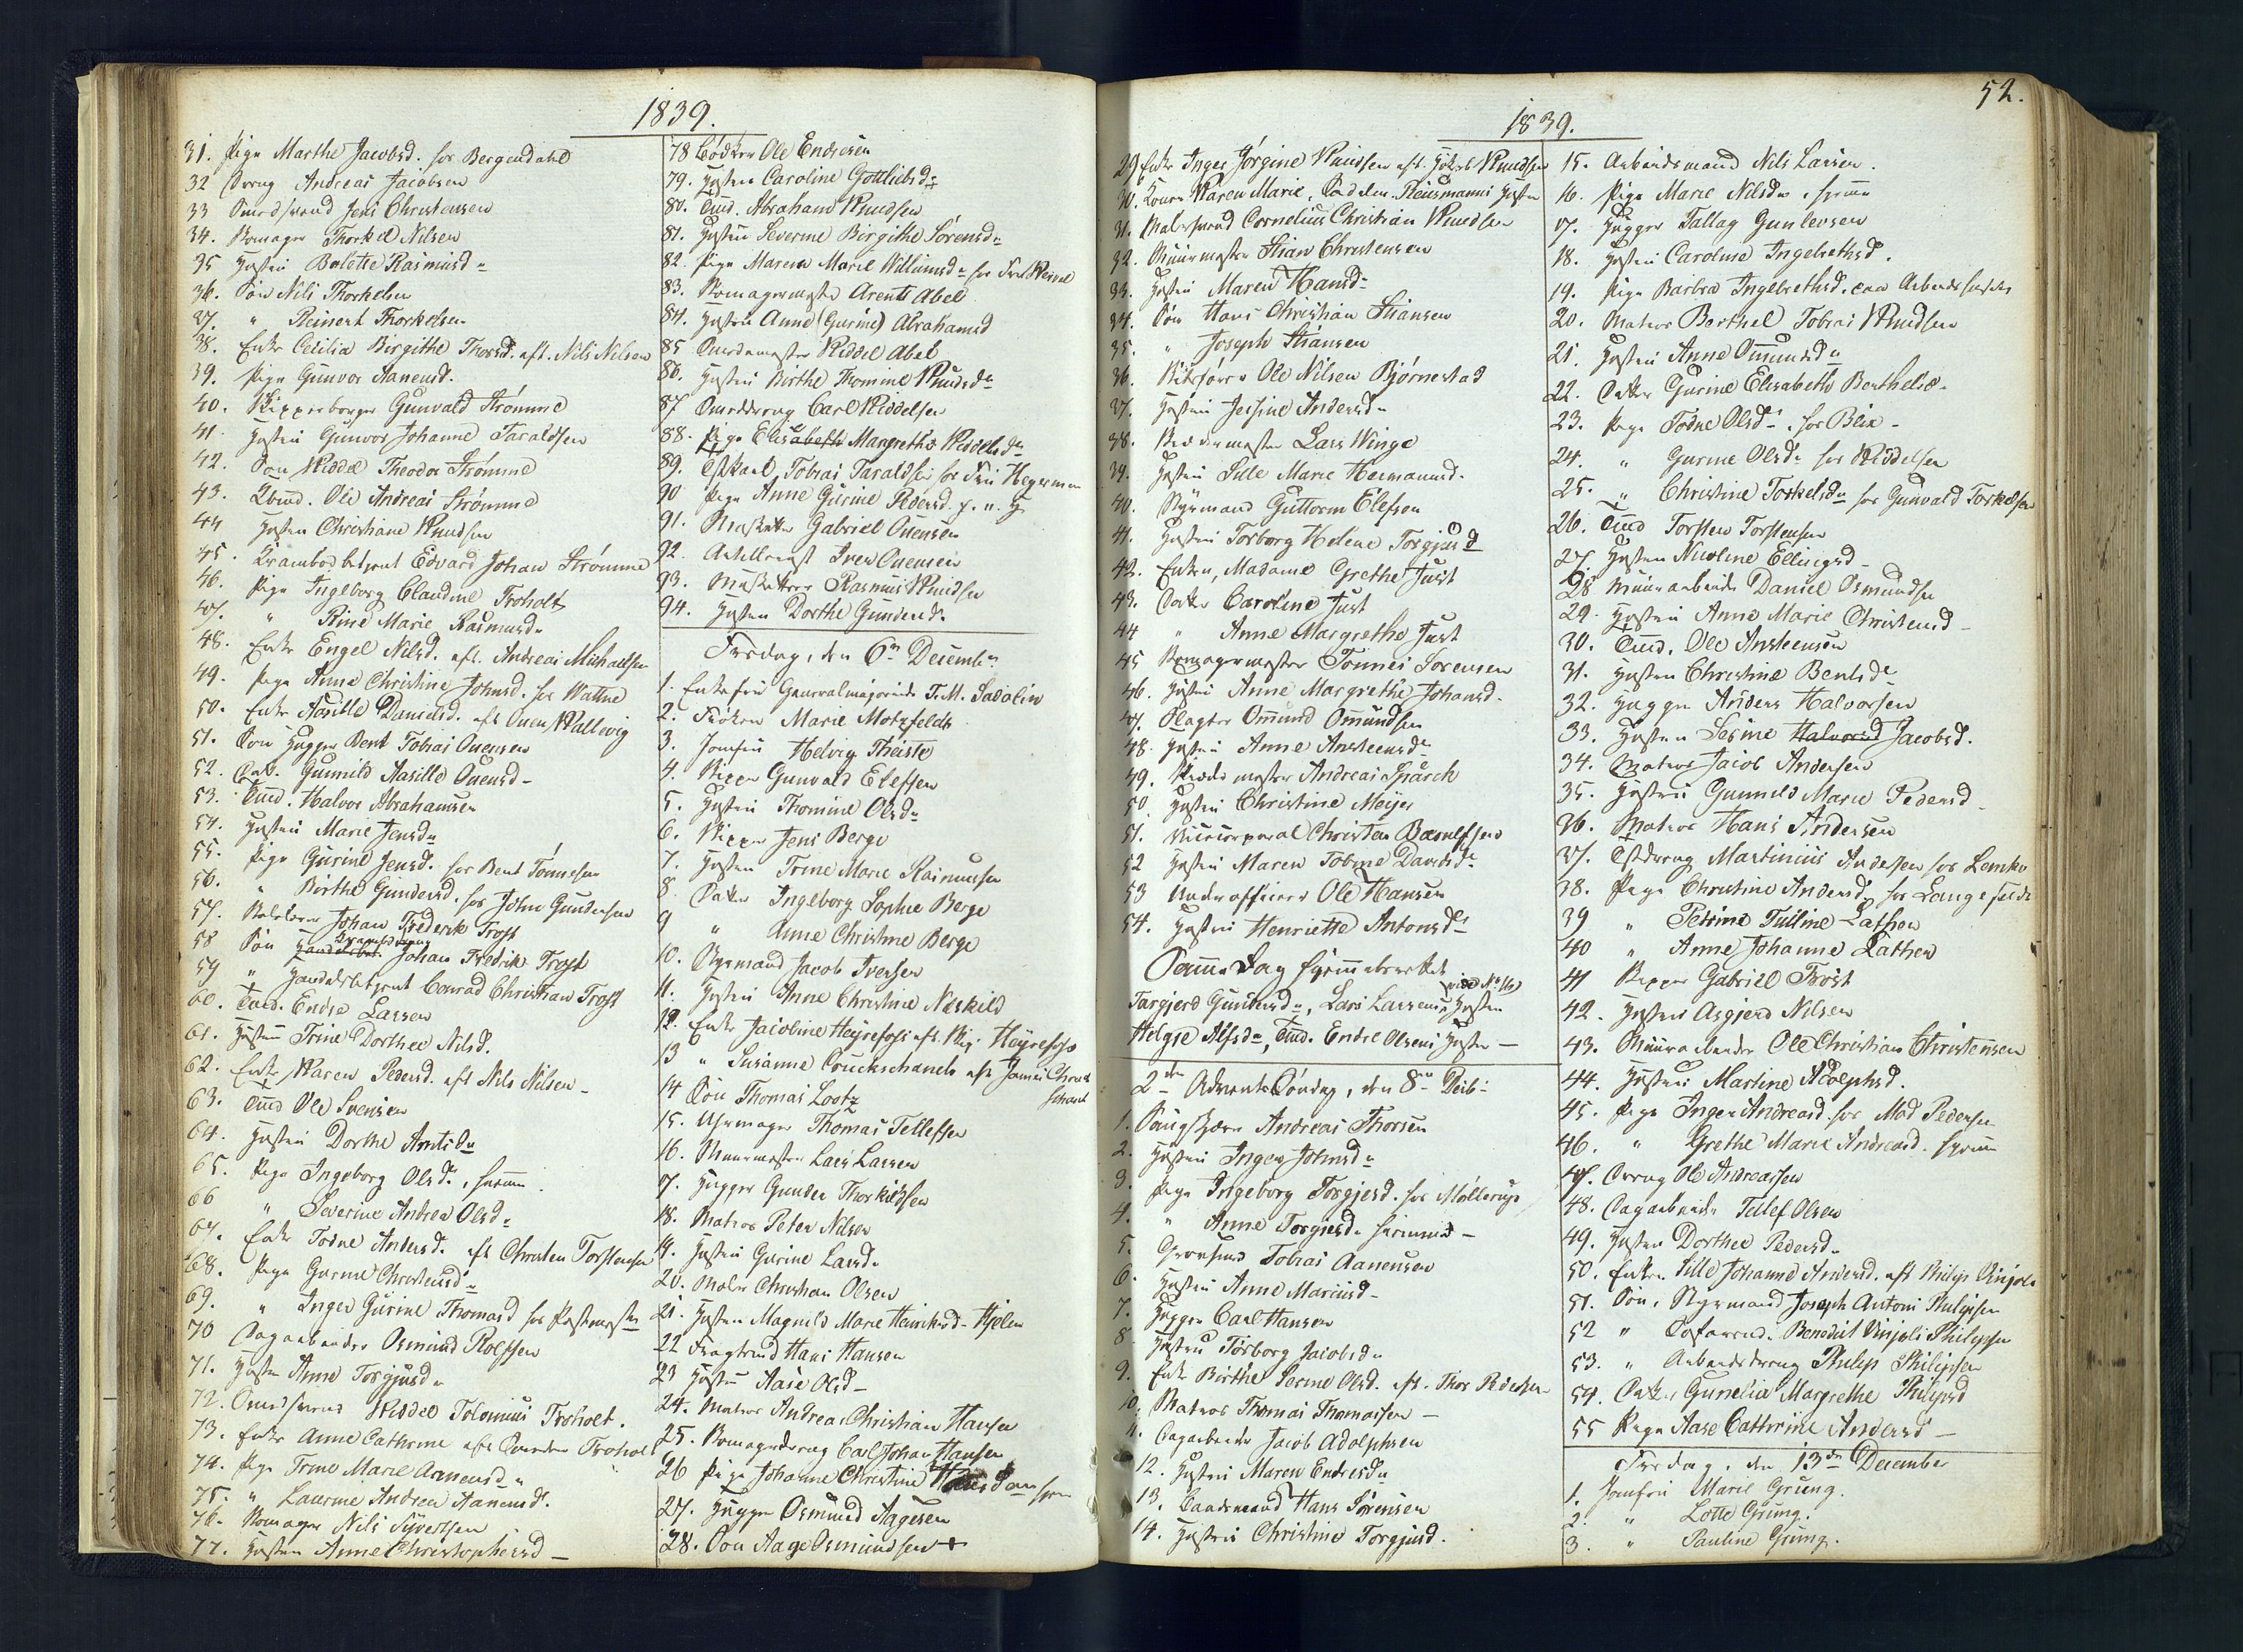 1839.
31. Pige Marthe Jacobsd. hos Bergendahl
32 Dreng Andreas Jacobsen
33 Smedsvend Jens Christensen
34. Skomager Thorkel Nilsen
35 Hustru Bolette Rasmusd.
36. Søn Nils Thorkelsen
37. " Reinert Thorkelsen
38. Enke Cecilia Birgithe Thorsd. eft. Nils Nilsen
39. Pige Gunvor Aanensd.
40. Skipperborger Gunvald Strømme
41. Hustru Gunvor Johanne Taraldsen
42. Søn Kiddel Theodor Strømme
43. Ole Andreas Strømme
44 Hustru Christiane Knudsen
45. Krambodbetjent Edvard Johan Strømme
46. Pige Ingeborg Claudine Troholt
47. " Rine Marie Rasmusd.
48. Enke Engel Nilsd. eft. Andreas Michaelsen
49. Pige Anne Christine Johnsd. hos Wattne
50. Enke Aasille Danielsd. eft Onen Wallevig
51. Søn Hugger Bent Tobias Onensen
52. Datt. Gunnild Aasille Onensd.
53. Tmd. Halvor Abrahamsen
54. Hustru Marie Jensd.
55. Pige Gurine Jensd. hos Bent Tønnesen
56. " Birthe Gundersd. hos John Gundersen
57. Johan Frederik Trost
58 Søn Krambdreng Johan Fredrik Trost
59 " Handelsbetjent Conrad Christian Trost
60. Tmd. Endre Larsen
61. Hustru Trine Dorthea Nilsd.
62. Enke Karen Pedersd. eft Nils Nilsen
63. Tmd Ole Svensen
64. Hustru Dorthe Arntsd.
65. Pige Ingeborg Olsd., hjemme
66 " Severine Andrea Olsd.
67. Enke Todne Andersd. eft Christen Torstensen
68. Pige Gurine Christensd.
69. " Inger Gurine Thomasd hos Postmester
70 Dagarbeider Osmund Rolfsen
71. Hustru Anne Torgjusd.
72. Smedsvend Kiddel Tolomius Troholt.
73. Enke Anne Cathrine eft Troholt
74. Pige Trine Marie Aanensd.
75. " Laurine Andrea Aanensd.
76. Skomager Nils Syvertsen
77. Hustru Anne Christophersd
78 Bødker Ole Endresen
79. Hustru Caroline Gottliebsd.
80. Tmd. Abraham Knudsen
81. Hustru Severine Birgithe Sørensd.
82. Pige Maren Marie Willumsd. hos Fru
83. Skomagermester Arents Abel
84. Hustru Anne (Gurine) Abrahamsd
85 Smedemester Kiddel Abel
86. Hustru Birthe Thomine Knudsd.
87 Smeddreng Carl Kiddelsen
88. Pige Elisabeth Margrethe Kiddelsd.
89. Tobias Taraldsen hos Fru Hegerman
90 Pige Anne Gurine Pedersd.
91. Musketer Gabriel Onensen
92. Iver Onensen
93. Musketeer Rasmus Knudsen
94. Hustru Dorthe Gundersd.
Fredag, den 6te December
1. Enkefrue Generalmajorinde T. M. Sadolin
2. Frøken Marie Motzfeldt
3. Jomfru Helvig Theiste
4. Skipper Gunvald Elefsen
5. Hustru Thomine Olsd.
6. Skipper Jens Berge
7. Hustru Trine Marie Rasmussen
8. Datter Ingeborg Sophie Berge
9 " Anne Christine Berge
10. Styrmand Jacob Iversen
11. Hustru Anne Christine Neskild
12. Enke Jacobine Høyrefoss eft. Høyrefoss
13 " Susanne Cruckschanck eft James Chruckschanck
14 Søn Thomas Lootz
15. Uhrmager Thomas Tellefsen
16. Murmester Lars Larsen
17. Hugger Gunder Thorkildsen
18. Matros Peter Nilsen
19. Hustru Gurine Larsd.
20. Maler Christian Olsen
21. Hustru Magnild Marie Henriksd. Hjelm
22 Fragtmd Hans Hansen
23 Hustru Aase Olsd.
24. Matros Andreas Christian Hansen
25. Skomagerdreng Carl Johan Hansen
26 Pige Johanne Christine Hansd.
27. Hugger Osmund Aagesen
28. Søn Aage Osmundsen
52.
1839.
29 Enke Inger Jørgine Knudsen eft. Knudsen
30. Karen Marie, Hustru
31. Malersvend Cornelius Christian Knudsen
32. Muurmester Stian Christensen
33. Hustru Maren Hansd.
34. Søn Hans Christian Stiansen
35. " Joseph Stiansen
36. Ole Nilsen Bjørnestad
37. Hustru Jessine Andersd.
38. Lars Winge
39. Hustru Sille Marie Hermansd.
40. Styrmand Guttorm Elefsen
41. Hustru Torborg Helene Torgjusd
42. Enken, Madame Grethe Just
43. Datter Caroline Just
44 " Anne Margrethe Just
45 Skomagermester Tønnes Sørensen
46. Hustru Anne Margrethe Johansd.
47. Slagter Omund Omundsen
48. Hustru Anne Ansteensd.
49. Andreas Spärck
50. Hustru Christine Meyer
51. Vicecorporal Christen Bærulfsen
52 Hustru Maren Tobine Davidsd.
53 Underofficer Ole Hansen
54. Hustru Henriette Antonsd.
Samme Dag hjemmeberettet
(vide No 16)
Targjerd Gundersd., Lars Larsens Hustru
Helgre Alfsd., Tmd. Endre Olsens Hustru
2den Advents Søndag, den 8de Decb.
1. Andreas Thorsen
2. Hustru Inger Johnsd.
3. Pige Ingeborg Torgjersd. hos Møllerup
4. " Anne Torgjersd. hjemme
5. Tobias Aanensen
6. Hustru Anne Mariusd.
7. Hugger Carl Hansen
8 Hustru Torborg Jacobsd.
9. Enke Birthe Serine Olsd. eft. Thor Pedersen
10. Matros Thomas Thomassen
11. Dagarbeider Jacob Adolphsen
12. Hustru Maren Endresd.
13. Baadsmand Hans Sørensen
14. Hustru Christine Torgjusd.
15. Arbeidsmand Nils Larsen.
16. Pige Marie Nilsd., hjemme
17. Hugger Tallag Gunlevsen
18. Hustru Caroline Ingebrethsd.
19. Pige Barbra Ingebrethsd. paa Arbeidshuset
20. Matros Berthel Tobias Knudsen
21. Hustru Anne Omundsd.
22. Datter Gurine Elisabeth Berthelsd.
23. Pige Todne Olsd., hos Blix
24. " Gurine Olsd. hos Kiddelsen
25. " Christine Torkelsd. hos Gunvald Torkelsen
26. Tmd Torsten Torstensen
27. Hustru Nicoline Ellingsd
28 Muurarbeider Daniel Osmundsen
29. Hustru Anne Marie Christensd
30. Tmd. Ole Ansteensen
31. Hustru Christine Bentsd.
32. Hugger Anders Halvorsen
33. Hustru Serine Halvorsd Jacobsd.
34. Matros Jacob Andersen
35. Hustru Gunnild Marie Pedersd
36. Matros Hans Andersen
37. Martinius Andersen hos Lemkе
38. Pige Christine Andersd. hos Langefeldt
39 " Petrine Tulline Lassen
40 " Anne Johanne Lassen
41 Skipper Gabriel Trost
42. Hustru Asgjerd Nilsen
43. Muurarbeider Ole Christian Christensen
44. Hustru Martine Adolphsd.
45. Pige Inger Andreasd. hos Mad Pedersen
46. " Grethe Marie Andreasd. hjemme
47. Dreng Ole Andreassen
48. Dagarbeider Tellef Olsen
49. Hustru Dorthea Pedersd.
50. Enken Sille Johanne Andersd. eft Philip
51. Søn, Styrmand Joseph Antoni Philipsen
52 " Søfarend. Benedict Philipsen
53. " Arbeidsdreng Philip Philipsen
54. Datter Gunelia Margrethe Philipsd
55 Pige Aase Cathrine Andersd
Fredag, den 13de December
1. Jomfru Marie Grung.
2. " Lotte Grung.
3. " Pauline Grung.